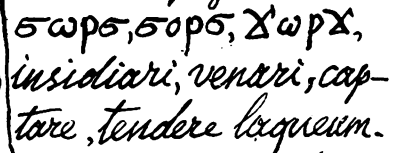 ϭⲱⲣϭ, ϭⲟⲣϭ, ϫⲱⲣϫ,
insidiari, venari, cap-
tare, tendere laqueum.